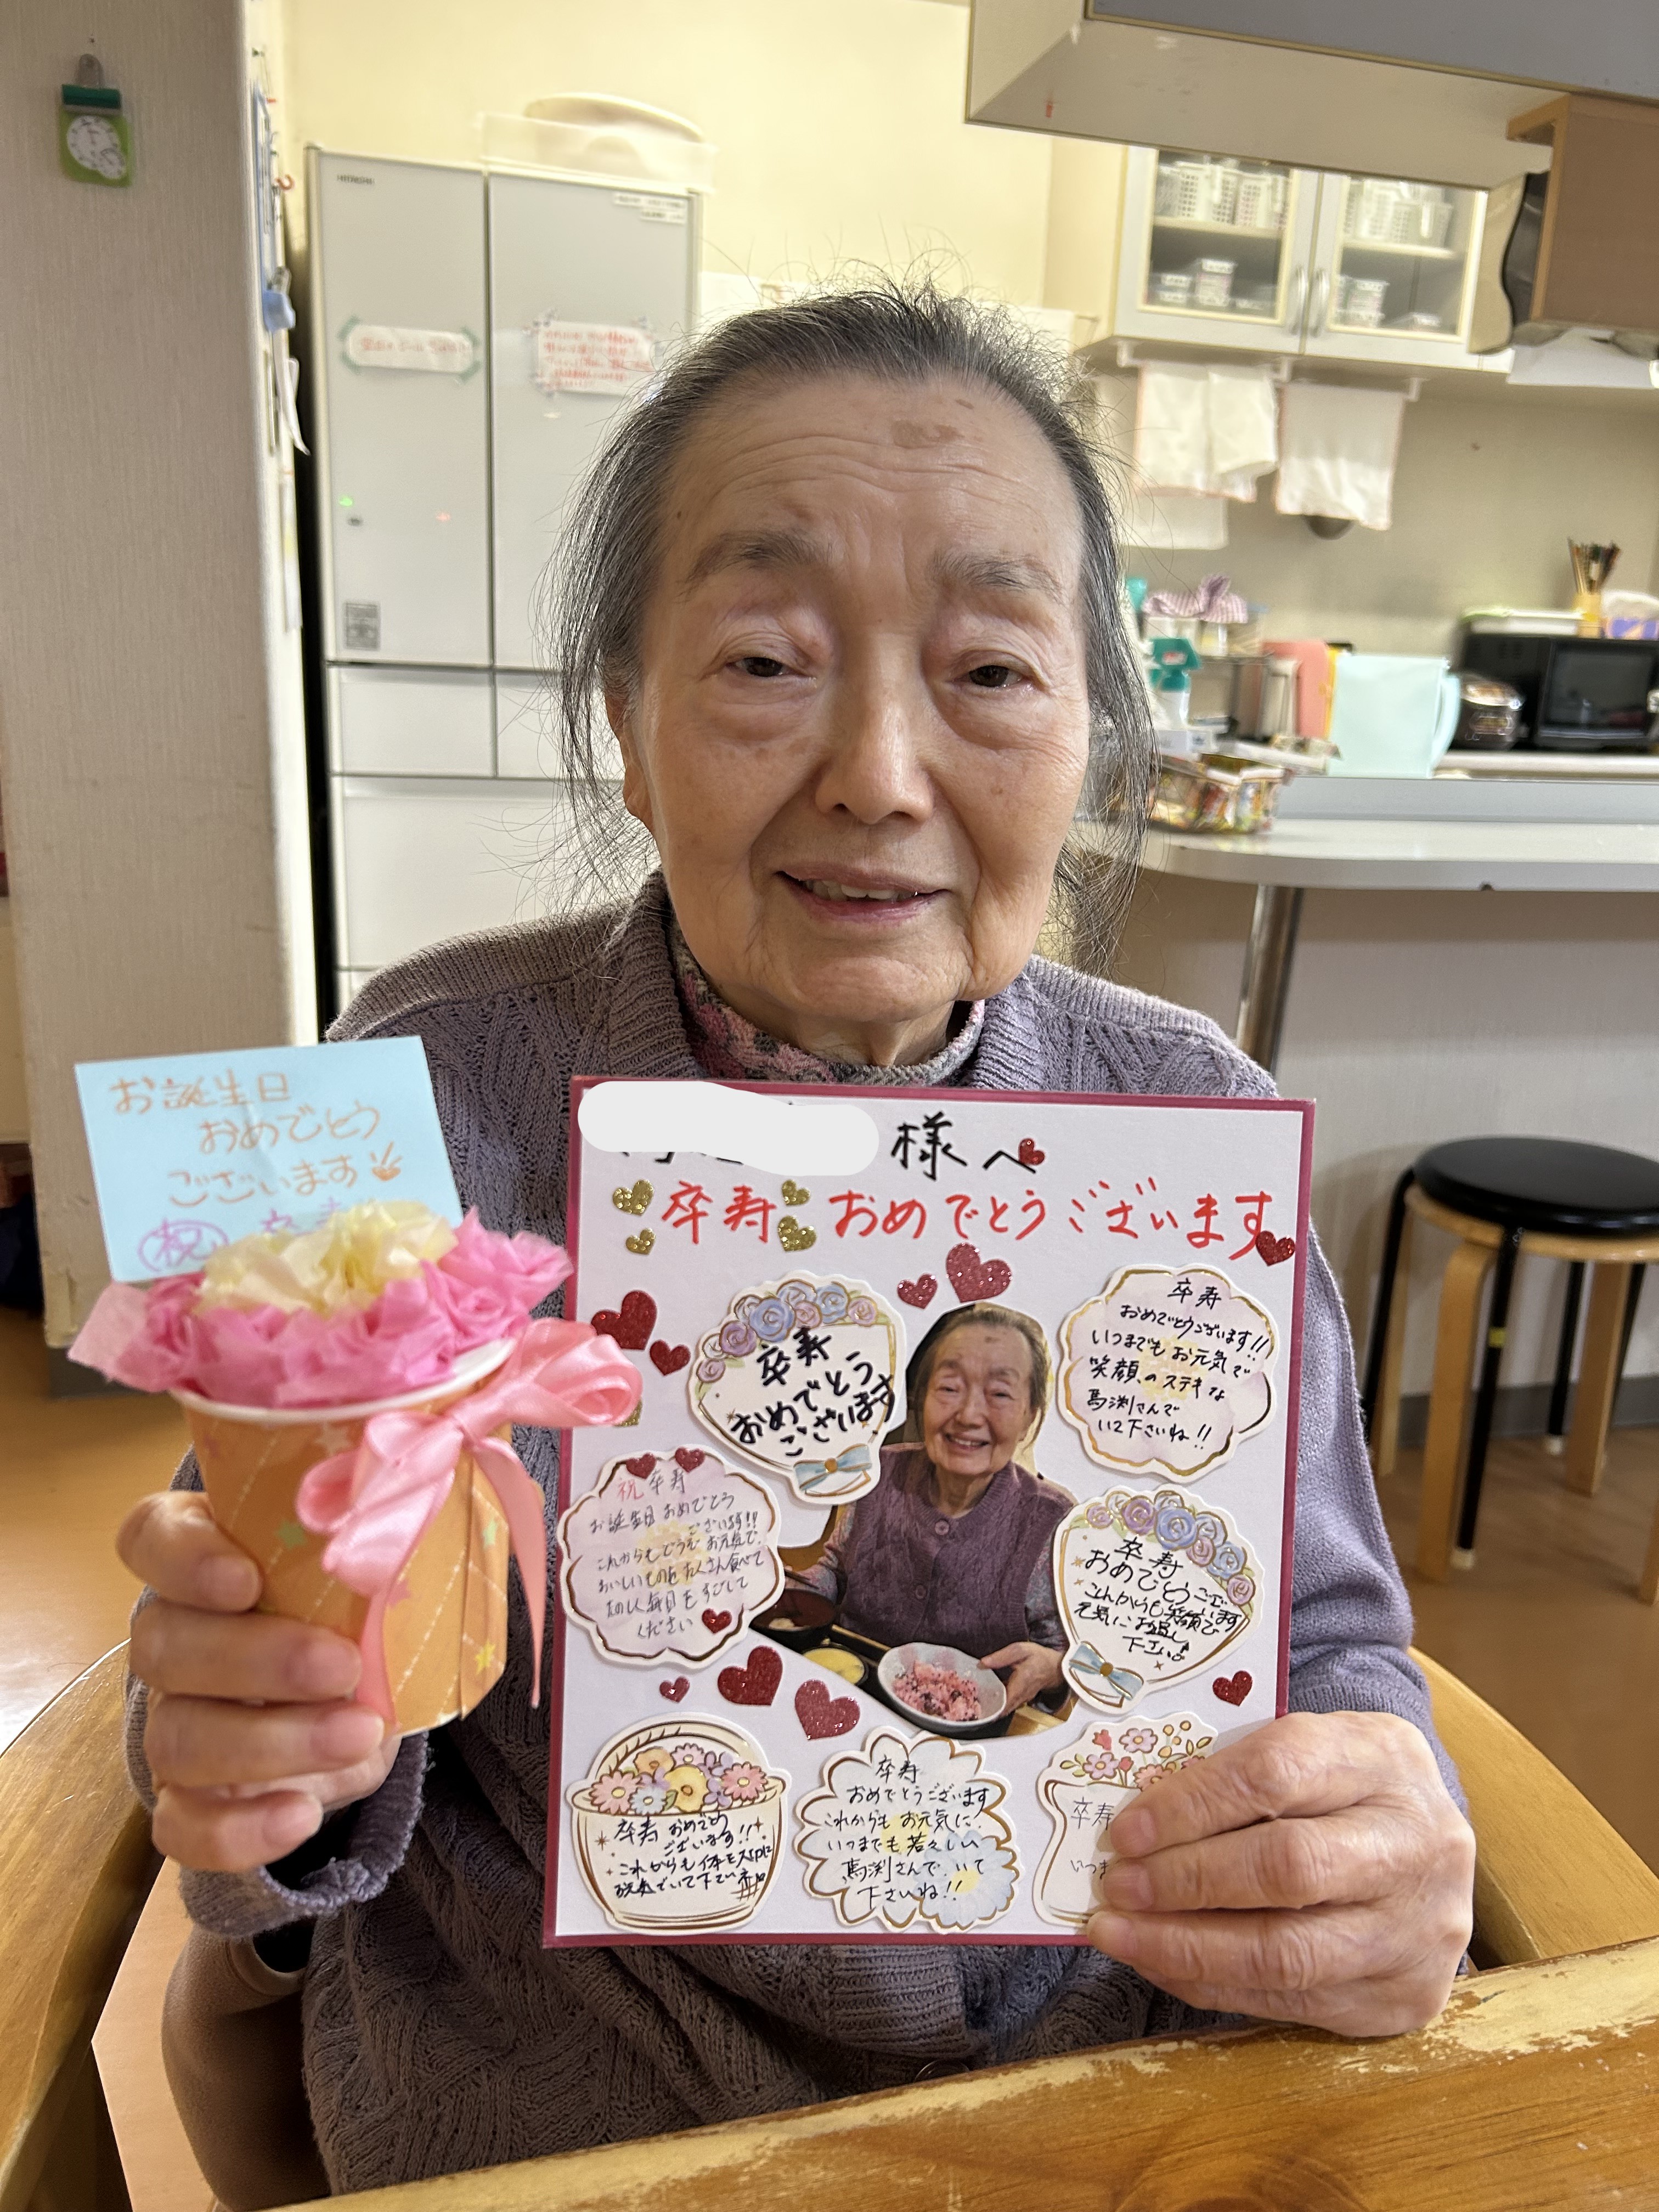 HITACHI
お誕生日
おめでとう
ございます
祝 卒寿
様へ
卒寿 おめでとうございます
卒寿
おめでとう
ございます
卒寿
おめでとうございます!!
いつまでもお元気で
笑顔のステキな
馬渕さんで
いて下さいね!!
祝 卒寿
お誕生日おめでとう
ございます!!
これからもどうぞお元気で、
おいしいものをたくさん食べて
たのしく毎日をすごして
ください
卒寿
おめでとうござ
います
これからも笑顔で
元気にお過し
下さい
卒寿 おめでとう
ございます!!
これからも体を大切に
元気でいて下さいネ
卒寿
おめでとうございます
これからもお元気に、
いつまでも若々しい
馬渕さんで、いて
下さいね!!
卒寿
いつま